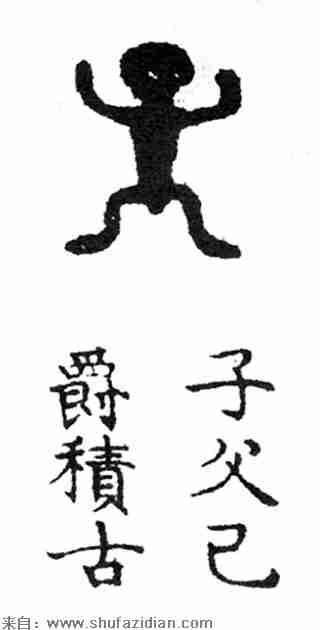 子父己
爵積古
来自：www.shufazidian.com